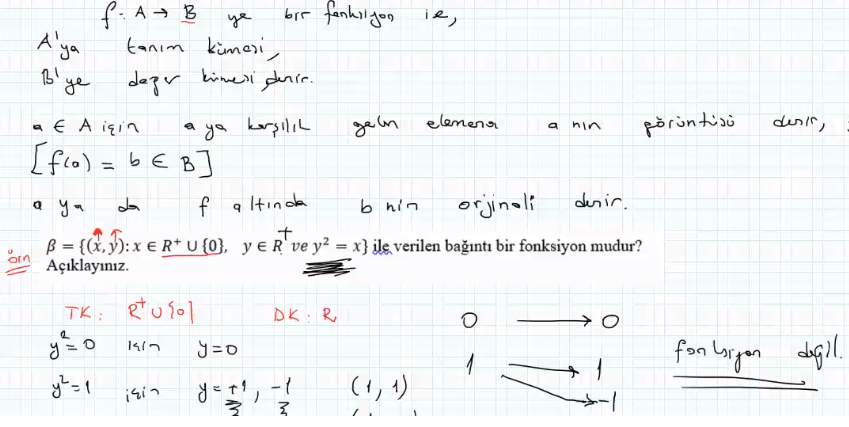 f: A → B ye bir fonksiyon ise,
A'ya tanım kümesi,
B'ye değer kümesi denir.
a ∈ A için a ya karşılık gelen elemana a nın görüntüsü denir,
[f(a) = b ∈ B]
a ya da f altında b nin orjinali denir.
örn β = {(x, y): x ∈ R⁺ ∪ {0}, y ∈ R⁺ ve y² = x} ile verilen bağıntı bir fonksiyon mudur?
Açıklayınız.
TK: R⁺ ∪ {0} DK: R
y² = 0 için y = 0 0 → 0
y² = 1 için y = +1, -1 (1, 1) 1 → 1 fonksiyon değil.
-1